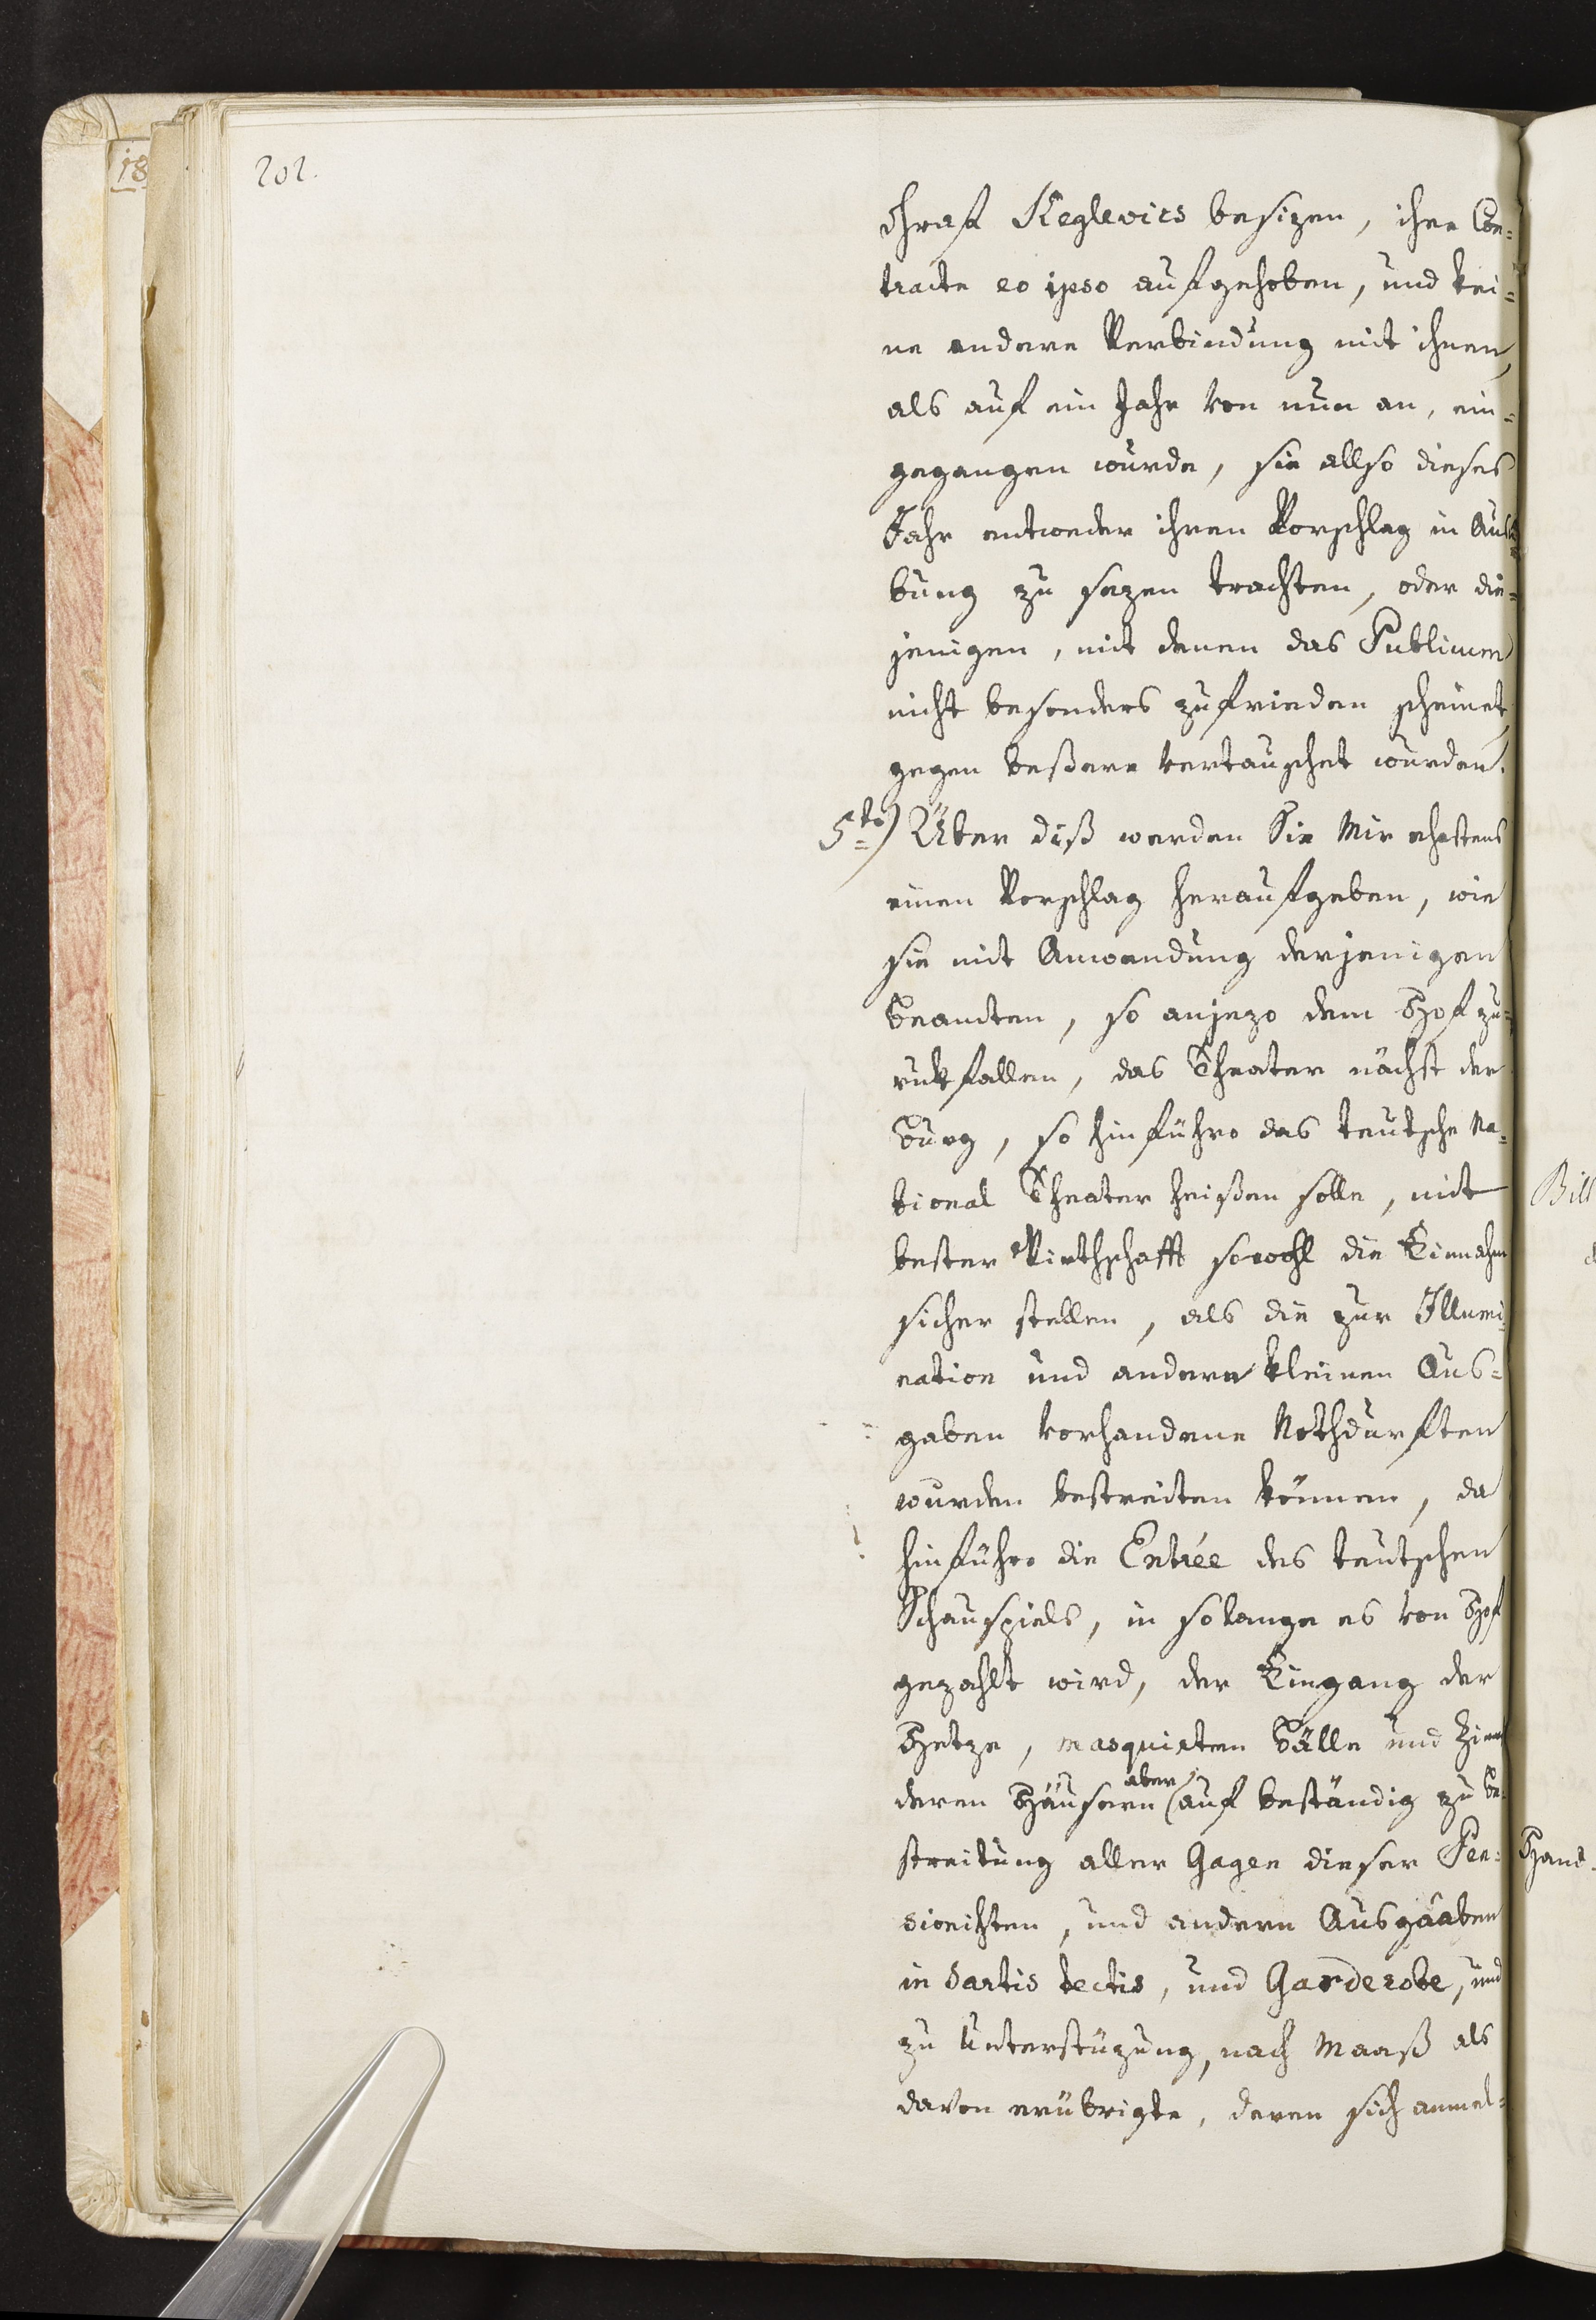 18
202.
Ghraf Keglevics besizen, ihre Con-
tracte eo ipso aufgehoben, und kei-
ne andere Verbindung mit ihnen
als auf ein Jahr von nun an, ein-
gegangen wurde, sie allso dieses
Jahr entweder ihren Vorschlag in Ausü-
bung zu sezen trachten, oder die-
jenigen, mit denen das Publicum
nicht besonders zufrieden scheinet
gegen beßere vertauschet wurden.
5to) Über diß werden Sie Mir ehestens
einen Vorschlag heraufgeben, wie
sie mit Anwendung derjenigen
Beamten, so anjezo dem Hof zu-
rukfallen, das Theater nächst der
Burg, so hinführo das teutsche Na-
tional Theater heißen solle, mit
bester Wirthschafft sowohl die Einnahm
sicher stellen, als die zur Illumi-
nation und andere kleinen Aus-
gaben vorhandene Nothdurften
wurden bestreiten können, da
hinführo die Entrée des teutschen
Schauspiels, in solange es von Hof
gezahlt wird, der Eingang der
Hetze, masquirten Bälle und
deren Häusern aber auf beständig zu be-
streitung aller Gagen dieser Pen-
sionisten, und andern Ausgaaben
in Sartis tectis, und Garderobe, und
zu Unterstüzung, nach Maaß als
davon erübrigte, deren sich anmel-
Bill
Hand